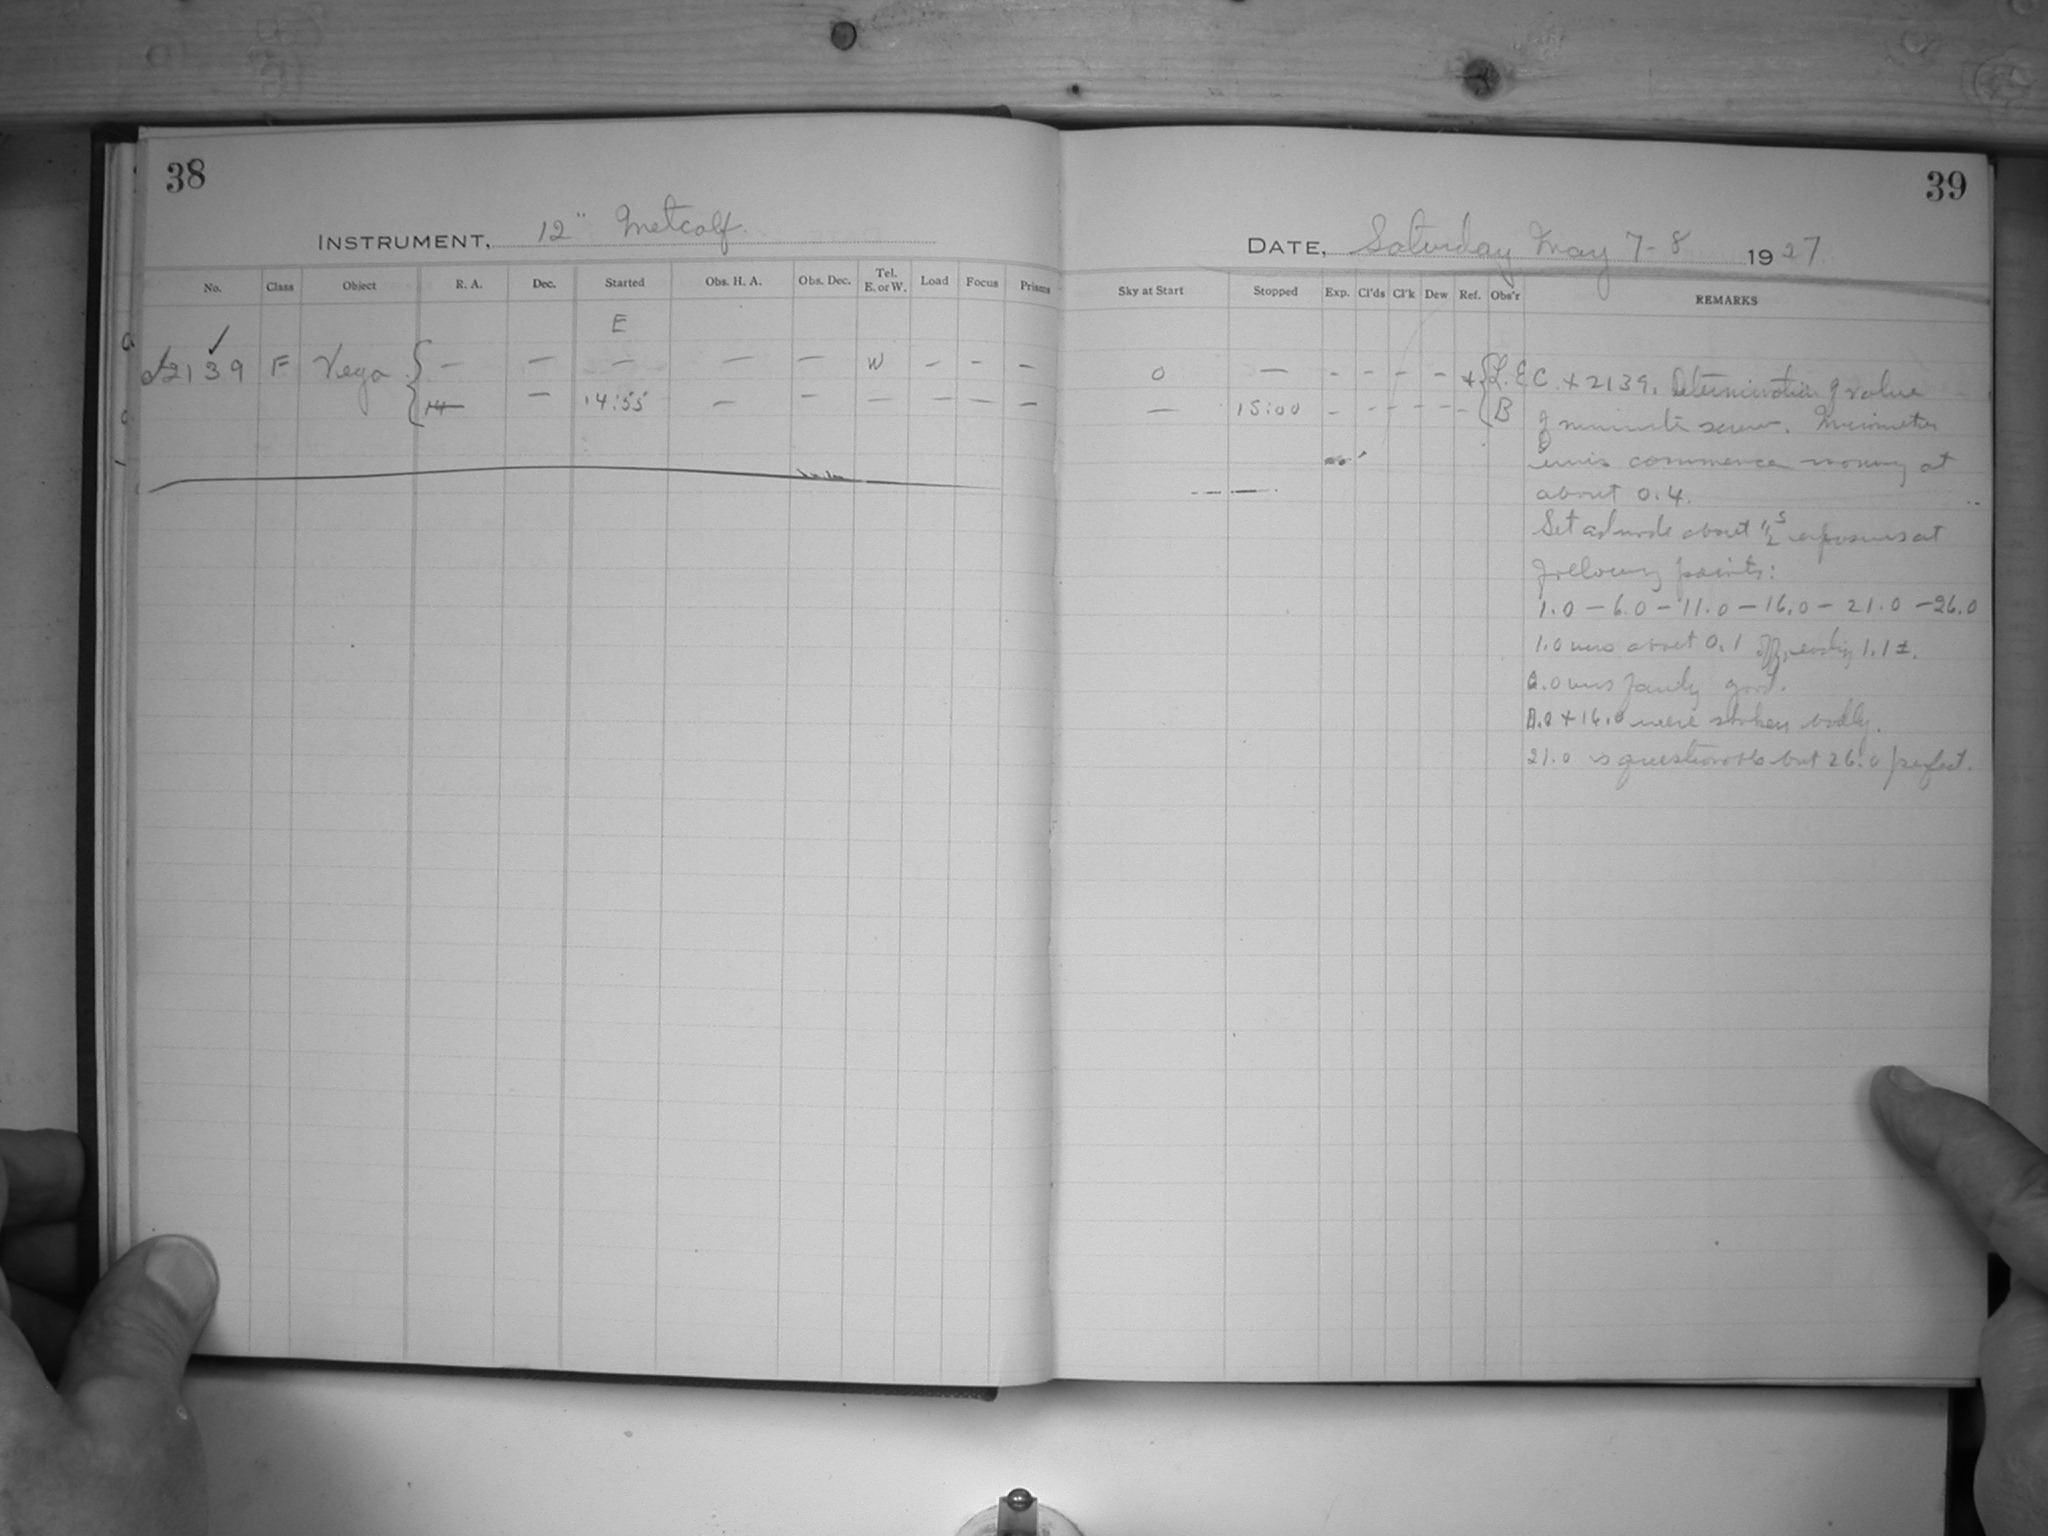 38
INSTRUMENT, 12" Metcalf.
No. Class Object R. A. Dec. Started Obs. H. A. Obs. Dec. Tel. E. or W. Load Focus Prisms
E
2139 F Vega — — — — — W — - —
14 — 14:55 — — — — — —
39
DATE, Saturday May 7-8 1927
Sky at Start Stopped Exp. Cl'ds Cl'k Dew Ref. Obs'r REMARKS
0 — - - - - L. E C. 2139. Determination of value
— 15:00 - - - - - B of screw. Micrometer
commence moving at
about 0.4.
Set and made about 1/2 s exposures at
following points:
1.0 — 6.0 — 11.0 — 16.0 — 21.0 — 26.0
1.0 was about 0.1 off, reading 1.1 ±.
6.0 was good.
11.0 + 16.0 were shaken badly.
21.0 is questionable but 26.0 perfect.